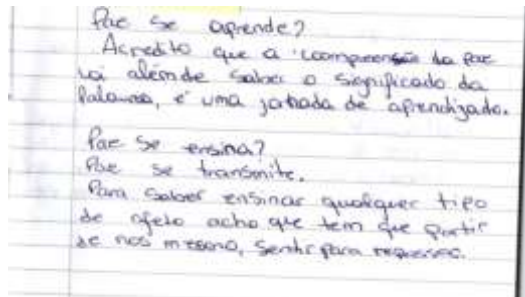 Paz se aprende?
Acredito que a compreensão da Paz
vai além de saber o significado da
Palavra, é uma jornada de aprendizado.
Paz se ensina?
Paz se transmite.
Para saber ensinar qualquer tipo
de afeto acho que tem que partir
de nós mesmo, sentir para